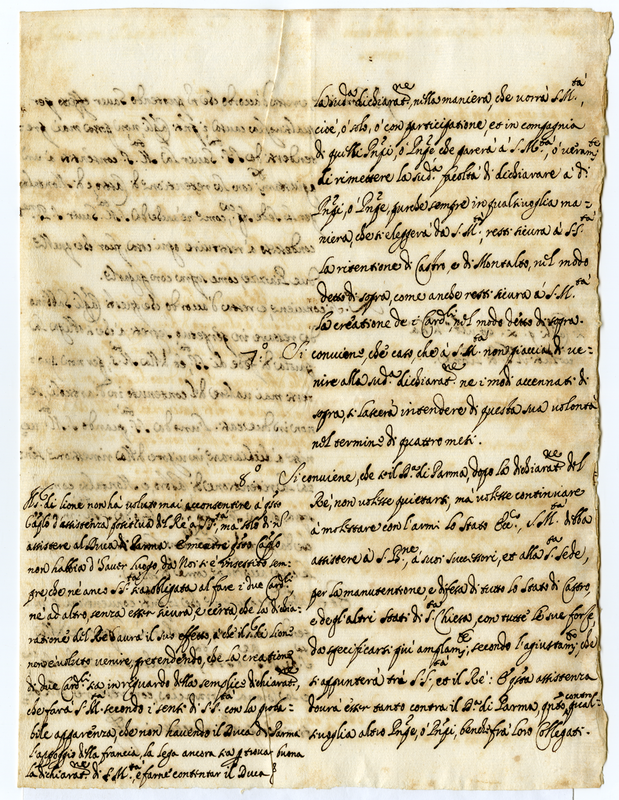 la sud.a dichiarat.ne, nella maniera, che vorrà S. M.tà,
cioè, ò solo, ò con participatione, et in compagnia
di quelli Pnpi, ò Pnpe che parerà à S. M.tà, ò veram.te
di rimettere la sud.a facoltà di dichiarare à d.i
Pnpi, ò Pnpe, purche sempre in qualsivoglia ma=
niera, che si eleggerà da S. M.tà, resti sicura à S. S.tà
la ritentione di Castro, e di Montalto, nel modo
detto di sopra, come anche resti sicura à S. M.tà
la creatione de i Card.li nel modo detto di sopra.
7.o Si conviene che caso che à S. M.tà non piaccia di ve=
nire alla sud.a dichiarat.ne ne i modi accennati di
sopra, si lascerà intendere di questa sua volontà
nel termine di quattro mesi.
8.o Si conviene, che se il D.a di Parma, dopo la dichiarat.ne del
Rè, non volesse quietarsi, mà volesse continuare
à molestare con l'armi lo Stato Ecc.o, S. M.tà debba
assistere à S. B.ne, à suoi successori, et alla S.ta Sede,
per la manutentione, e difesa di tutto lo Stato di Castro
e degl'altri Stati di S.ta Chiesa, con tutte le sue forze
da specificarsi qui amplam.te, secondo l'agiustam.to, che
si appunterà trà S. S.tà, et il Rè: E q.sta assistenza
dovrà esser tanto contro il D.a di Parma, q.nto contro qual=
sivoglia altro Pnpe, ò Pnpi, benche frà loro Collegati.
M.r di Lione non hà voluto mai acconsentire à q.sto
Cap.lo d'assistenza positiva del Rè à S. S.tà ma solo di nõ
assistere al Duca di Parma. E mentre q.sto Cap.lo
non habbia d'haver luogo, da Noi si è insestito sem=
pre, che ne anco S. S.tà sia obligata al fare i due Card.li
ne ad altro, senza esser sicura, e certa che la dichia=
ratione del Rè haurà il suo effetto, à che il s.r de Lione
non è voluto venire, pretendendo, che la creatione
di due Card.li sia in riguardo della semplice dichiarat.ne
che farà S. M.tà secondo i sensi di S. S.tà con la proba=
bile apparenza, che non havendo il Duca di Parma
l'appoggio della francia, la lega ancora sia p trovar buona
la dichiarat.ne di S. M.tà, e farne contentar il Duca